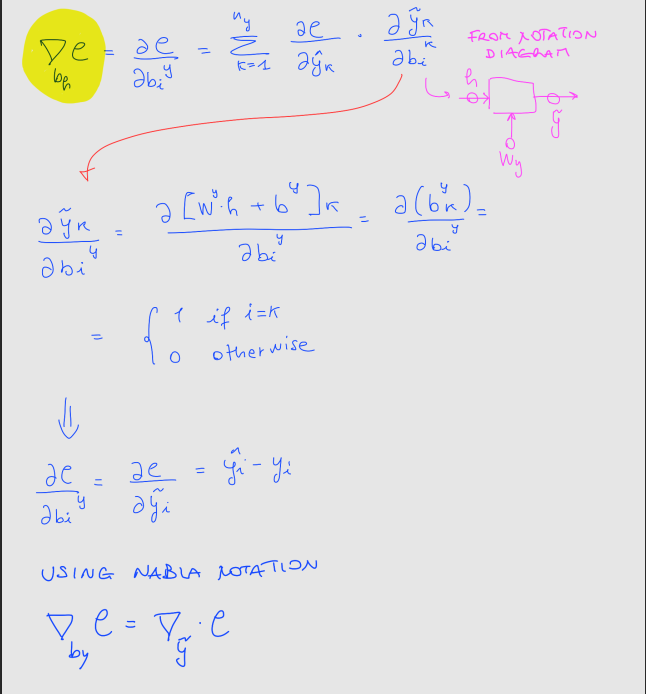 ∇_{b_h} e = ∂e/∂b_i^y = Σ_{k=1}^{n_y} ∂e/∂ŷ_k · ∂ỹ_k/∂b_i^k
FROM NOTATION
DIAGRAM
h
ỹ
W_y
∂ỹ_k/∂b_i^y = ∂[W^y·h + b^y]_k/∂b_i^y = ∂(b_k^y)/∂b_i^y =
= { 1 if i=k
0 otherwise
⇓
∂e/∂b_i^y = ∂e/∂ỹ_i = ŷ_i - y_i
USING NABLA NOTATION
∇_{b_y} e = ∇_ỹ · e